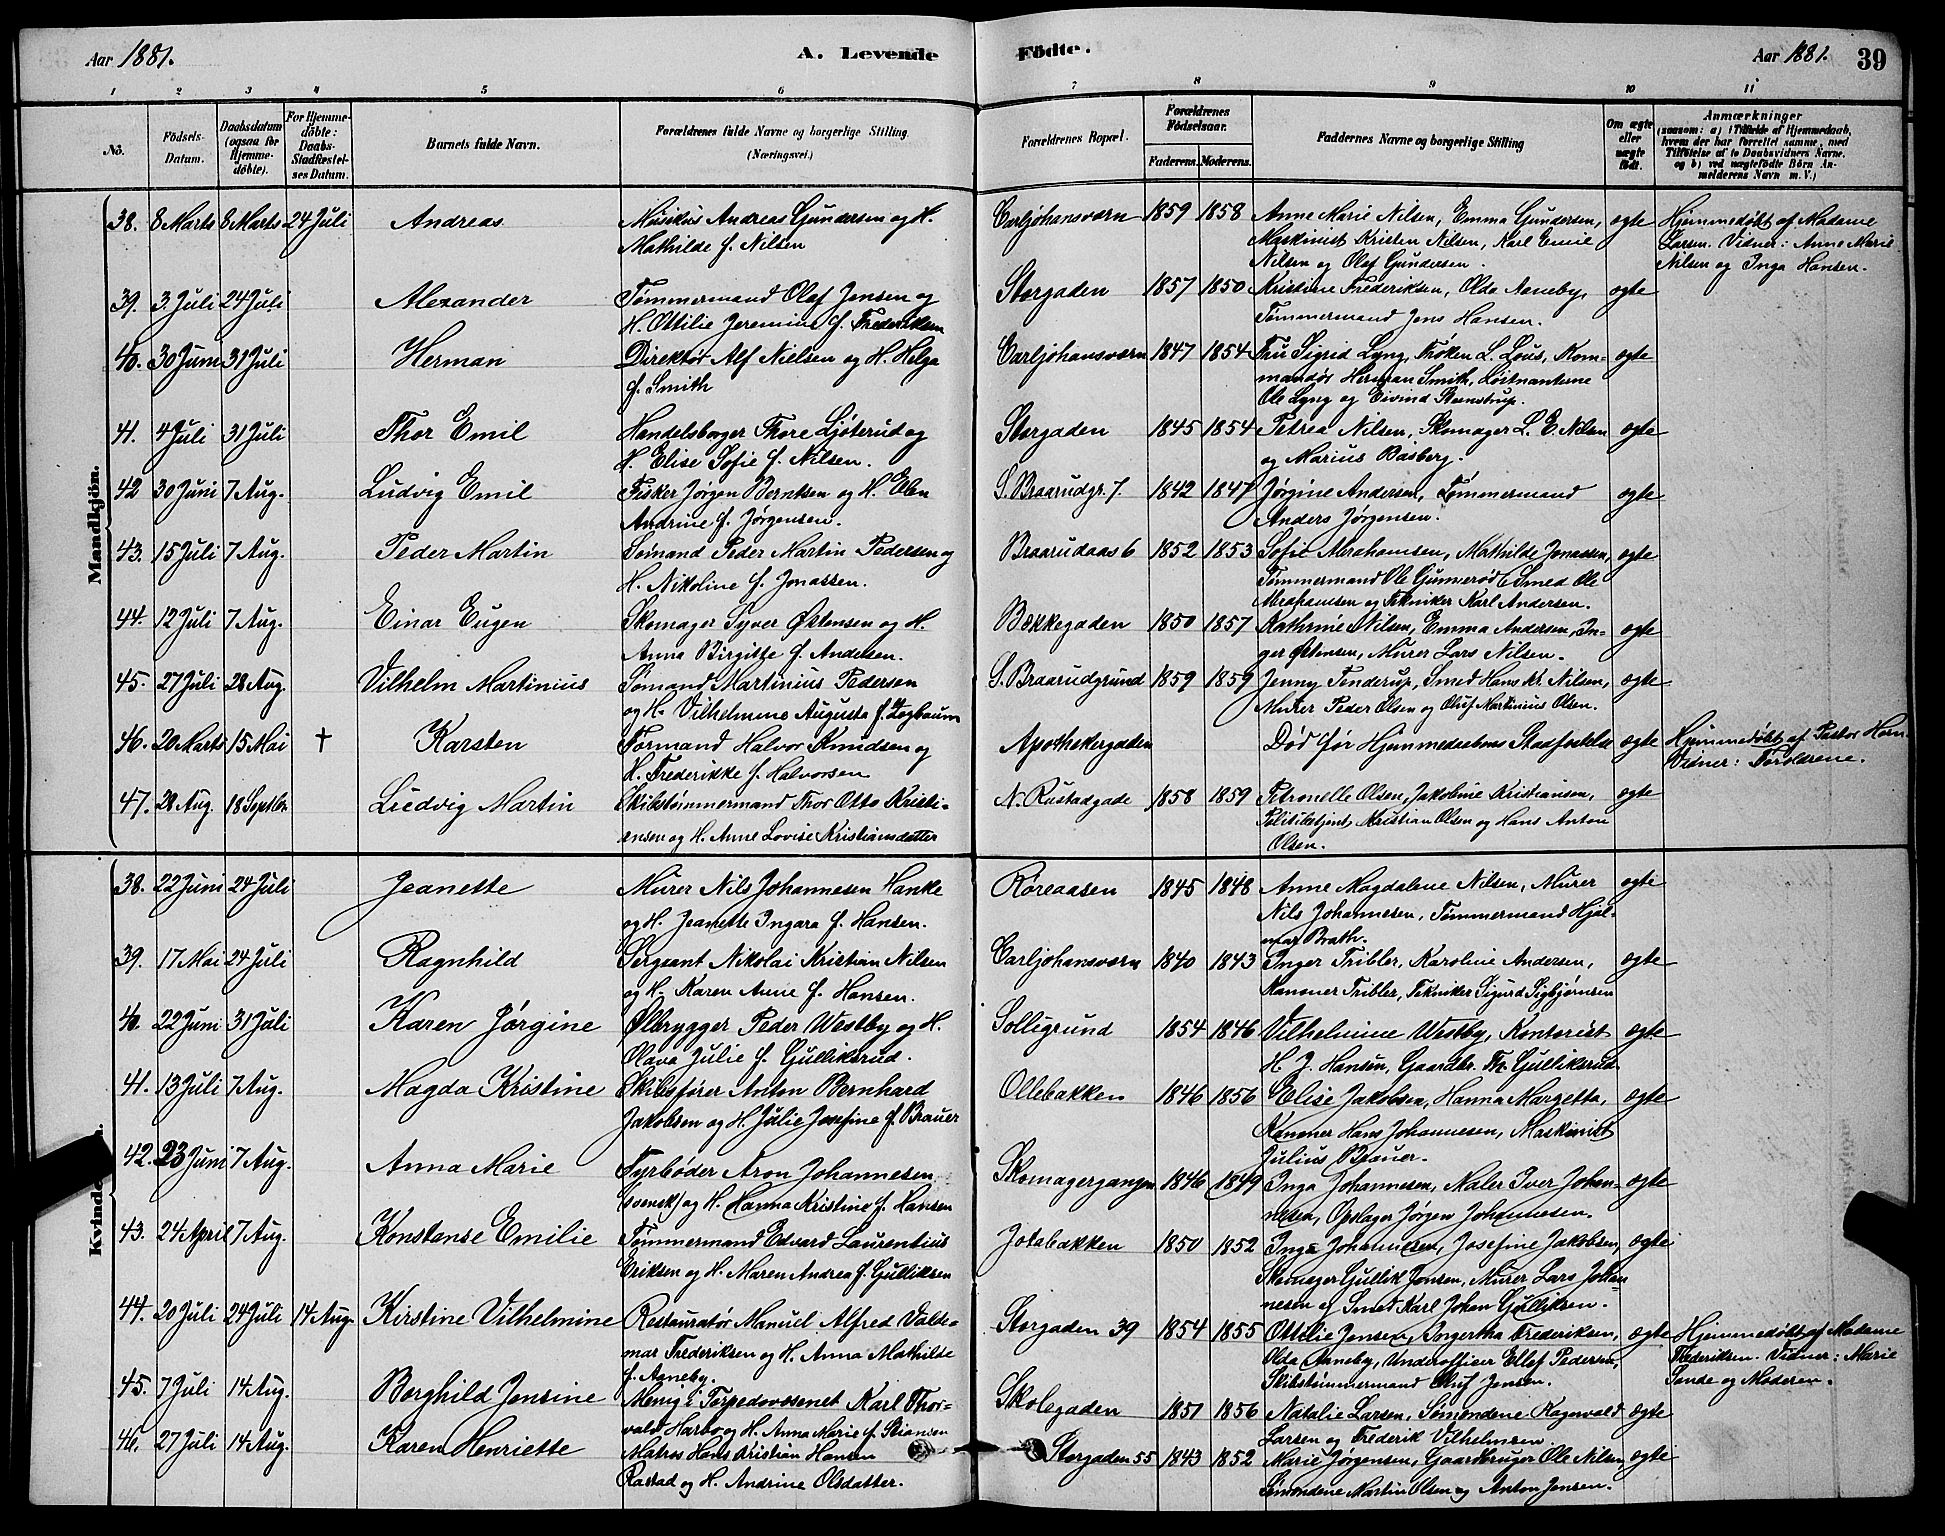 Aar 1881.
A. Levende
Födte.
Aar 1881.
39
1 2 3 4 5 6 7 8 9 10 11
No.
Födsels-Datum.
Daabsdatum (ogsaa for Hjemme-döbte).
For Hjemme-döbte: Daabs-Stadfæstel-ses Datum.
Barnets fulde Navn.
Forældrenes fulde Navne og borgerlige Stilling. (Næringsvei.)
Forældrenes Bopæl.
Forældrenes Födselsaar.
Faderens. Moderens.
Faddernes Navne og borgerlige Stilling
Om ægte eller uægte födt.
Anmærkninger
(saasom: a) i Tilfælde af Hjemmedaab, hvem der har forrettet samme, med Tilföielse af to Daabsvidners Navne, og b) ved uægtefödte Börn An-melderens Navn m. V.)
Mandkjön.
38. 8 Marts 8 Marts 24 Juli Andreas Musikus Andreas Gundersen og H. Carljohansværn 1859 1858 Anne Marie Nilsen, Emma Gundersen, ægte Hjemmedøbt af Madame
Mathilde f. Nilsen Maskinist Kristen Nilsen, Karl Emil Larsen. Vidner: Anne Marie
Nilsen og Olaf Gundersen. Nilsen og Inga Hansen.
39. 3 Juli 24 Juli Alexander Tømmermand Olaf Jensen og Storgaden 1857 1850 Kristine Frederiksen, Olda Aaneby, ægte
H. Ottilie Jeremine f. Frederiksen Tømmermand Jens Hansen.
40. 30 Juni 31 Juli Herman Direktør Alf Nielsen og H. Helga Carljohansværn 1847 1854 Fru Sigrid Lyng, Frøken L. Lous, Kom- ægte
f. Smith mandør Herman Smith, Løitnanterne
Ole Lyng og Eivind Steenstrup.
41. 4 Juli 31 Juli Thor Emil Handelsborger Thore Ljøterud og Storgaden 1845 1854 Petrea Nilsen, Skomager L. E. Nilsen ægte
H. Elise Sofie f. Nilsen. og Marius Basberg.
42 30 Juni 7 Aug. Ludvig Emil Fisker Jørgen Berntsen og H. Elen S. Braarudgr. 7. 1842 1847 Jørgine Andersen, Tømmermand ægte
Andrine f. Jørgensen. Anders Jørgensen.
43. 15 Juli 7 Aug. Peder Martin Sømand Peder Martin Pedersen og Braarudaas 6 1852 1853 Sofie Abrahamsen, Mathilde Jonassen, ægte
H. Nikoline f. Jonassen. Tømmermand Ole Gunnerød, Smed Ole
Abrahamsen og Tekniker Karl Andersen.
44. 12 Juli 7 Aug. Einar Eugen Skomager Syver Østensen og H. Bækkegaden 1850 1857 Kathrine Nilsen, Emma Andersen, In- ægte
Anna Birgitte f. Andersen. ger Østensen, Murer Lars Nilsen.
45. 27 Juli 28 Aug. Vilhelm Martinius Sømand Martinius Pedersen S. Braarudgrund 1859 1859 Jenny Tenderup, Smed Hans Kr. Nilsen, ægte
og H. Vilhelmine Augusta f. Murer Peder Olsen og Oluf Martinius Olsen.
46. 20 Marts 15 Mai † Karsten Formand Halvor Knudsen og Apothekergaden Død før Hjemmedaabens Stadfæstelse ægte Hjemmedøbt af Pastor Horn.
H. Frederikke f. Halvorsen Vidner: Forældrene.
47. 28 Aug. 18 Septbr. Ludvig Martin Skibstømmermand Thor Otto Kristi- N. Rustadgade 1858 1859 Petronelle Olsen, Jakobine Kristiansen, ægte
ansen og H. Anne Lovise Kristiansdatter Politibetjent Kristian Olsen og Hans Anton
Olsen.
Kvinde
38. 22 Juni 24 Juli Jeanette Murer Nils Johannesen Hanke Røreaasen 1845 1848 Anne Magdalene Nilsen, Murer ægte
og H. Jeanette Ingara f. Hansen. Nils Johannesen, Tømmermand Hjal-
mar Brath.
39. 17 Mai 24 Juli Ragnhild Sergeant Nikolai Kristian Nilsen Carljohansværn 1840 1843 Inger Tribler, Karoline Andersen, ægte
og H. Karen Anne f. Hansen. Kanoner Tribler, Tekniker Sigurd Sigbjørnsen
40. 22 Juni 31 Juli Karen Jørgine Ølbrygger Peder Westby og H. Solligrund 1854 1846 Vilhelmine Westby, Kontorist ægte
Olava Julie f. Gulliksrud. H. J. Hansen, Gaardbr. Th. Gulliksrud
41. 13 Juli 7 Aug. Magda Kristine Skibsfører Anton Bernhard Ollebakken 1846 1856 Elise Jakobsen, Hanna Margetta, ægte
Jakobsen og H. Julie Josefine f. Brauer Kanoner Hans Johannesen, Maskinist
Julius Brauer.
42. 23 Juni 7 Aug. Anna Marie Fyrbøder Aron Johannesen Skomagergangen 1846 1849 Inga Johannesen, Maler Iver Johan- ægte
(svensk) og H. Hanna Kristine f. Hansen nesen, Opslager Jørgen Johannesen.
43. 24 April 7 Aug. Konstanse Emilie Tømmermand Edvard Laurentius Jotabakken 1850 1852 Inga Johannesen, Josefine Jakobsen, ægte
Eriksen og H. Maren Andrea f. Gulliksen Skomager Gullik Jensen, Murer Lars Johan
nesen og Smed Karl Johan Gulliksen.
44. 20 Juli 24 Juli 14 Aug. Kirstine Vilhelmine Restauratør Manuel Alfred Valde- Storgaden 39 1854 1855 Ottilie Jensen, Ingertha Frederiksen, ægte Hjemmedøbt af Madame
mar Frederiksen og H. Anna Mathilde Olda Aaneby, Underofficer Ellef Pedersen, Frederiksen. Vidner: Marie
f. Aaneby. Skibstømmermand Oluf Jensen. Sande og Moderen.
45. 7 Juli 14 Aug. Borghild Jensine Menig i Torpedovæsenet Karl Thor- Skolegaden 1851 1856 Natalie Larsen, Sømændene Ragnvald ægte
vald Harbo og H. Anna Marie f. Stiansen Larsen og Frederik Vilhelmsen.
46. 27 Juli 14 Aug. Karen Henriette Matros Hans Kristian Hansen Storgaden 55 1843 1852 Marie Jørgensen, Gaardbruger Ole Nilsen, ægte
Rastad og H. Andrine Olsdatter. Sømændene Martin Olsen og Anton Jensen.